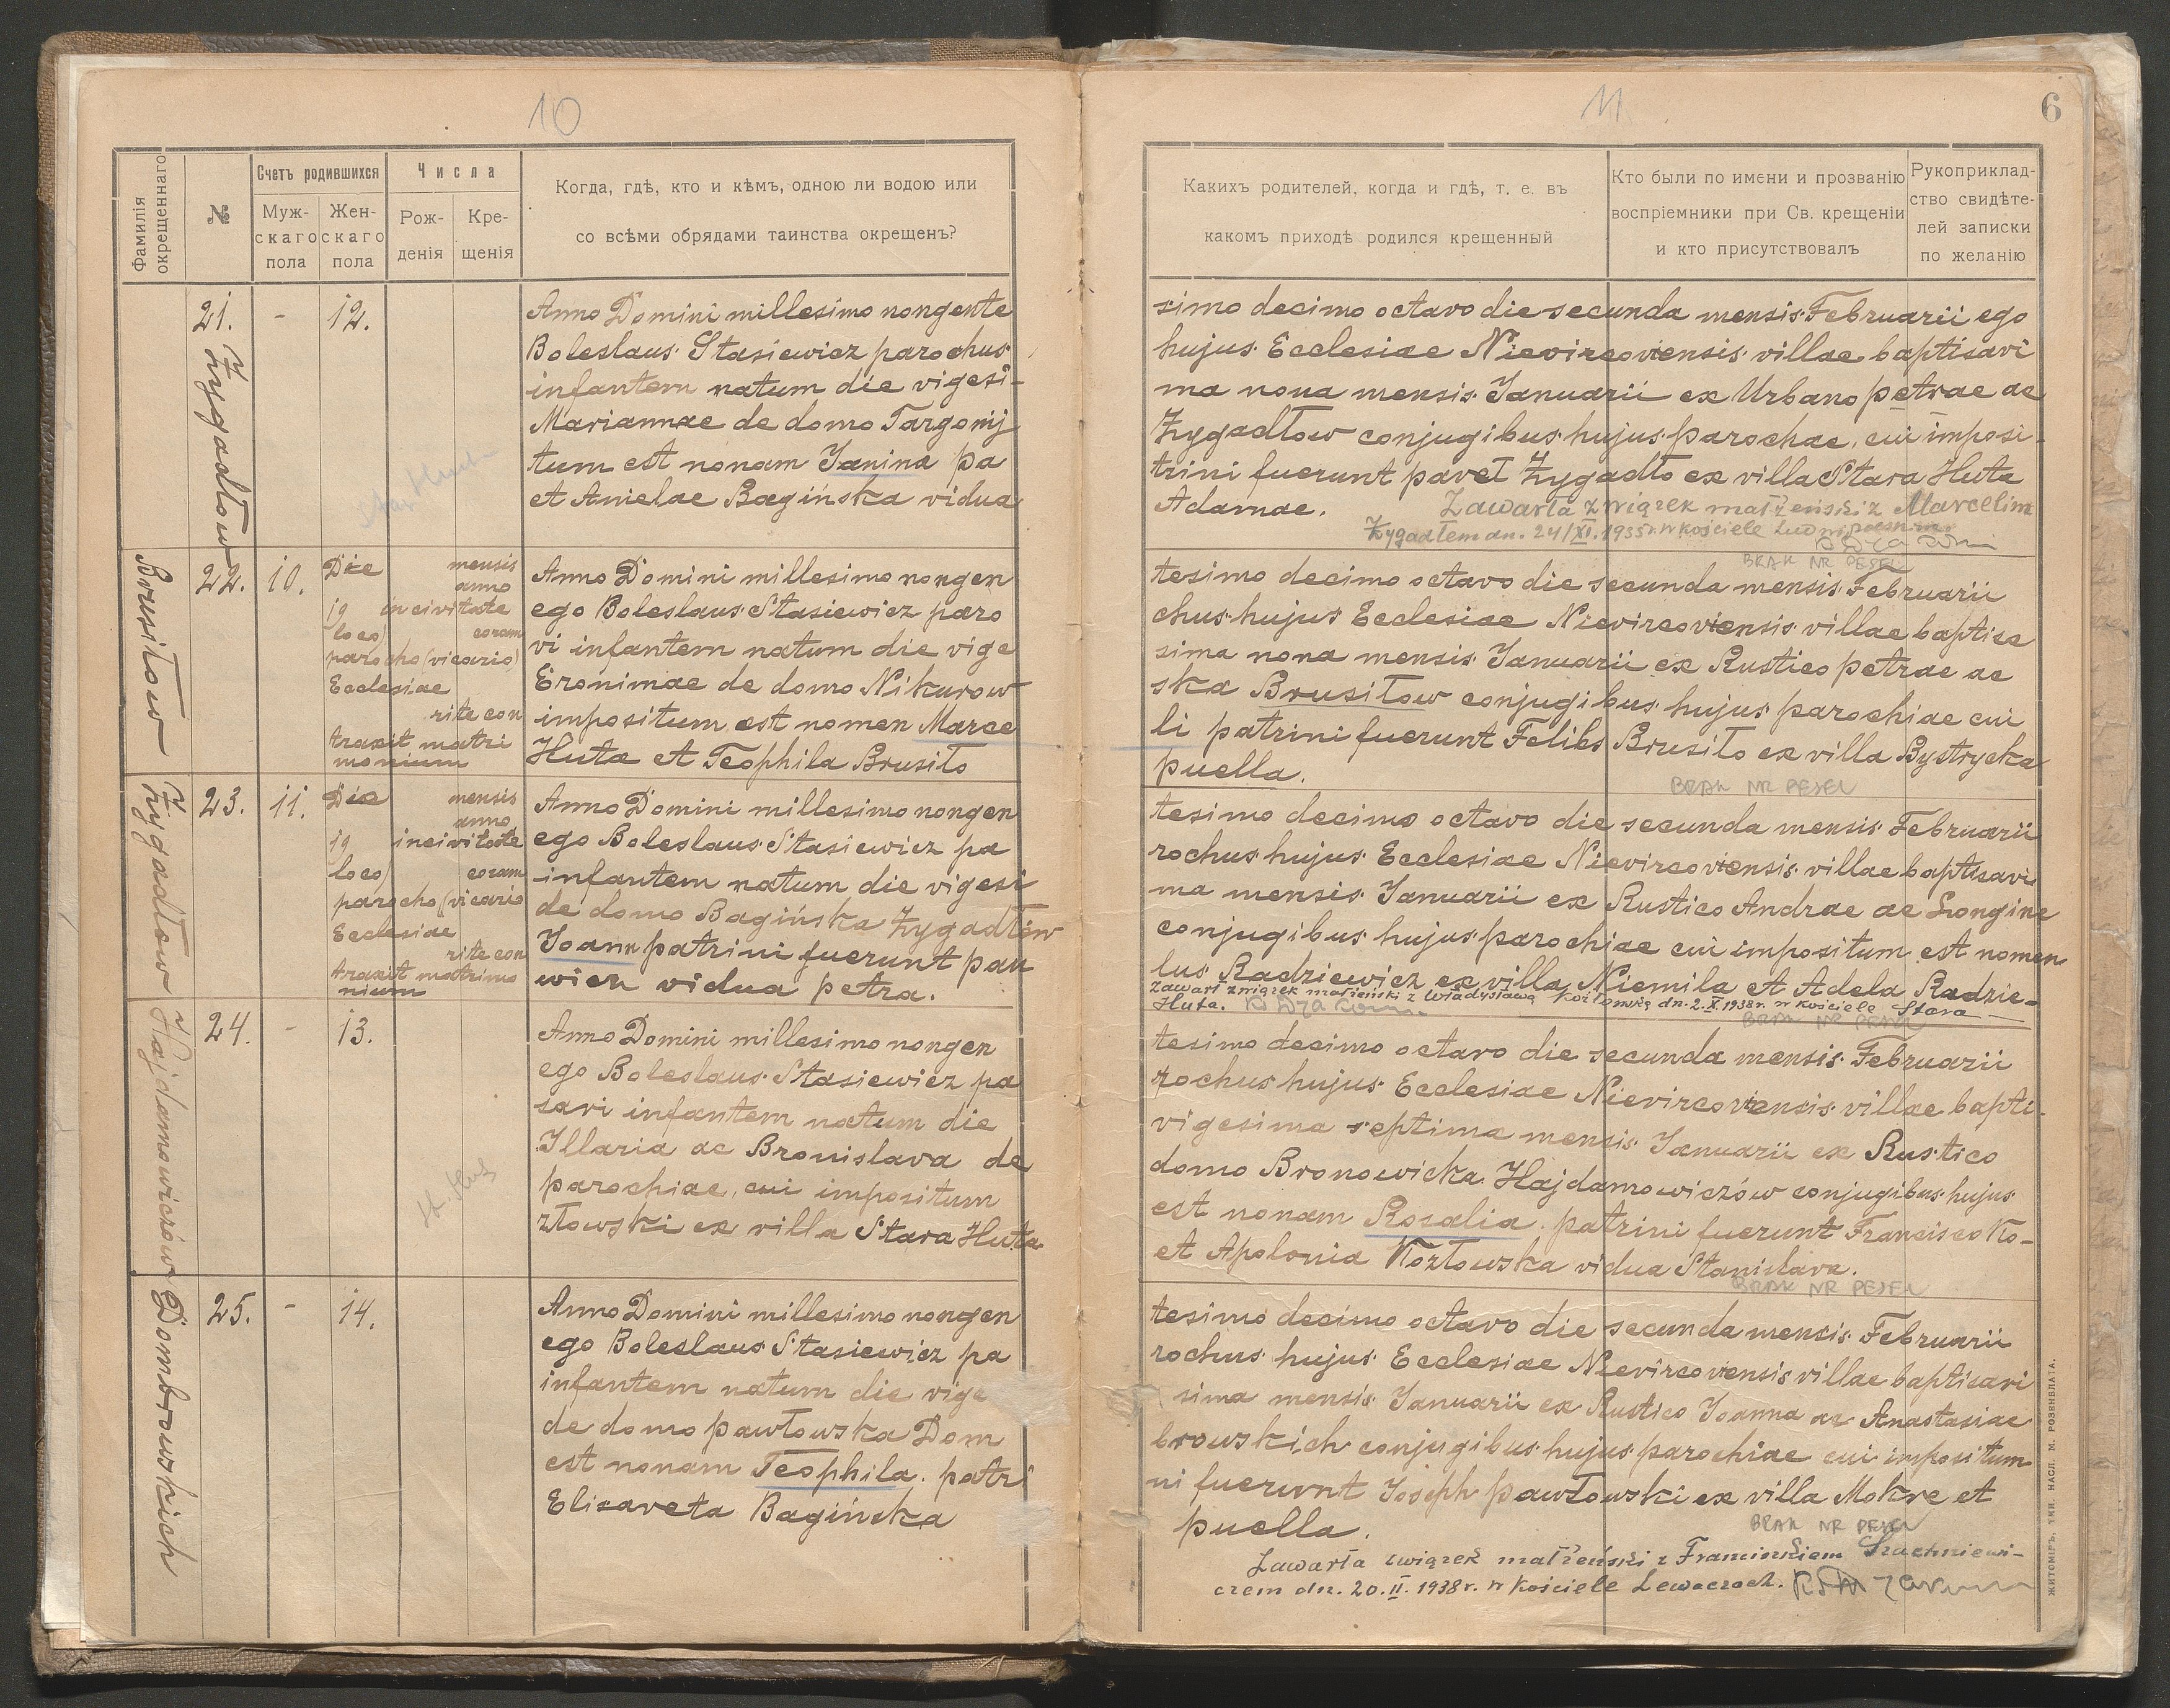 10
Фамилія окрещеннаго
№
Счетъ родившихся
Мужскаго пола
Женскаго пола
Числа
Рожденія
Крещенія
Когда, гдѣ, кто и кѣмъ, одною ли водою или
со всѣми обрядами таинства окрещенъ?
21. - 12.
Żygadłow
Anno Domini millesimo nongente
Boleslaus Stasiewicz parochus
infantem natum die vigesi-
Mariannae de domo Targonij
tum est nonam Janina pa
et Anielae Bagińska vidua
22. 10.
Brusiłow
Die mensis
anno
19 in civitate
loco) coram
parocho (vicario)
Ecclesiae
rite con
traxit matri
monium
Anno Domini millesimo nongen
ego Boleslaus Stasiewicz paro
vi infantem natum die vige
Eronimae de domo Nikurow
impositum est nomen Marce
Huta et Teophila Brusiło
23. 11.
Żygadłow
Die mensis
anno
19 in civitate
loco) coram
parocho (vicario
Ecclesiae
rite con
traxit matrimo
nium
Anno Domini millesimo nongen
ego Boleslaus Stasiewicz pa
infantem natum die vigesi
de domo Bagińska Żygadłow
Joann patrini fuerunt pau
wicz vidua petra.
24. - 13.
Hajdamowiczów
Anno Domini millesimo nongen
ego Boleslaus Stasiewicz pa
sari infantem natum die
Illaria ac Bronislava de
parochiae, cui impositum
złowski ex villa Stara Huta
25. - 14.
Dombrowskich
Anno Domini millesimo nongen
ego Boleslaus Stasiewicz pa
infantem natum die vige
de domo pawłowska Dom
est nonam Teophila. patri
Elisaveta Bagińska
11
6
Какихъ родителей, когда и гдѣ, т. е. въ
какомъ приходѣ родился крещенный
Кто были по имени и прозванію
воспріемники при Св. крещеніи
и кто присутствовалъ
Рукоприклад-
ство свидѣте-
лей записки
по желанію
simo decimo octavo die secunda mensis Februarii ego
hujus Ecclesiae Nievircoviensis villae baptisavi
ma nona mensis Januarii ex Urbano petrae ac
Żygadłow conjugibus hujus parochae, cui imposi-
trini fuerunt paveł Żygadło ex villa Stara Huta
Adamae.
Zawarła związek małżeński z Marcelim
Żygadłem dn. 24/XI.1935 r. w kościele Ludwipolskim
BRAK NR PESEL
tesimo decimo octavo die secunda mensis Februarii
chus hujus Ecclesiae Nievircoviensis villae baptisa
sima nona mensis Januarii ex Rustico petrae ac
ska Brusiłow conjugibus hujus parochiae cui
li patrini fuerunt Feliks Brusiło ex villa Bystrycka
puella.
BRAK NR PESEL
tesimo decimo octavo die secunda mensis Februarii
rochus hujus Ecclesiae Nievircoviensis villae baptisavi
ma mensis Januarii ex Rustico Andrae ac Longina
conjugibus hujus parochiae cui impositum est nomen
lus Radziewicz ex villa Niemila et Adela Radzie-
Zawarł związek małżeński z Władysławą Kozłowską dn. 2.X.1938 r. w kościele Stara
Huta.
BRAK NR PESEL
tesimo decimo octavo die secunda mensis Februarii
rochus hujus Ecclesiae Nievircoviensis villae bapti-
vigesima septima mensis Januarii ex Rustico
domo Bronowicka Hajdamowiczów conjugibus hujus
est nonam Rosalia. patrini fuerunt Francisco Ko-
et Apolonia Kozłowska vidua Stanislava.
BRAK NR PESEL
tesimo decimo octavo die secunda mensis Februarii
rochus hujus Ecclesiae Nievircoviensis villae baptisavi
sima mensis Januarii ex Rustico Joanna ac Anastasiae
browskich conjugibus hujus parochiae cui impositum
ni fuerunt Joseph pawłowski ex villa Mokre et
puella.
BRAK NR PESEL
Zawarła związek małżeński z Franciszkiem
czem dn. 20.II.1938 r. w kościele Lewaczach.
ЖИТОМІРЪ, ТИП. НАСЛ. М. РОЗЕНБЛАТА.